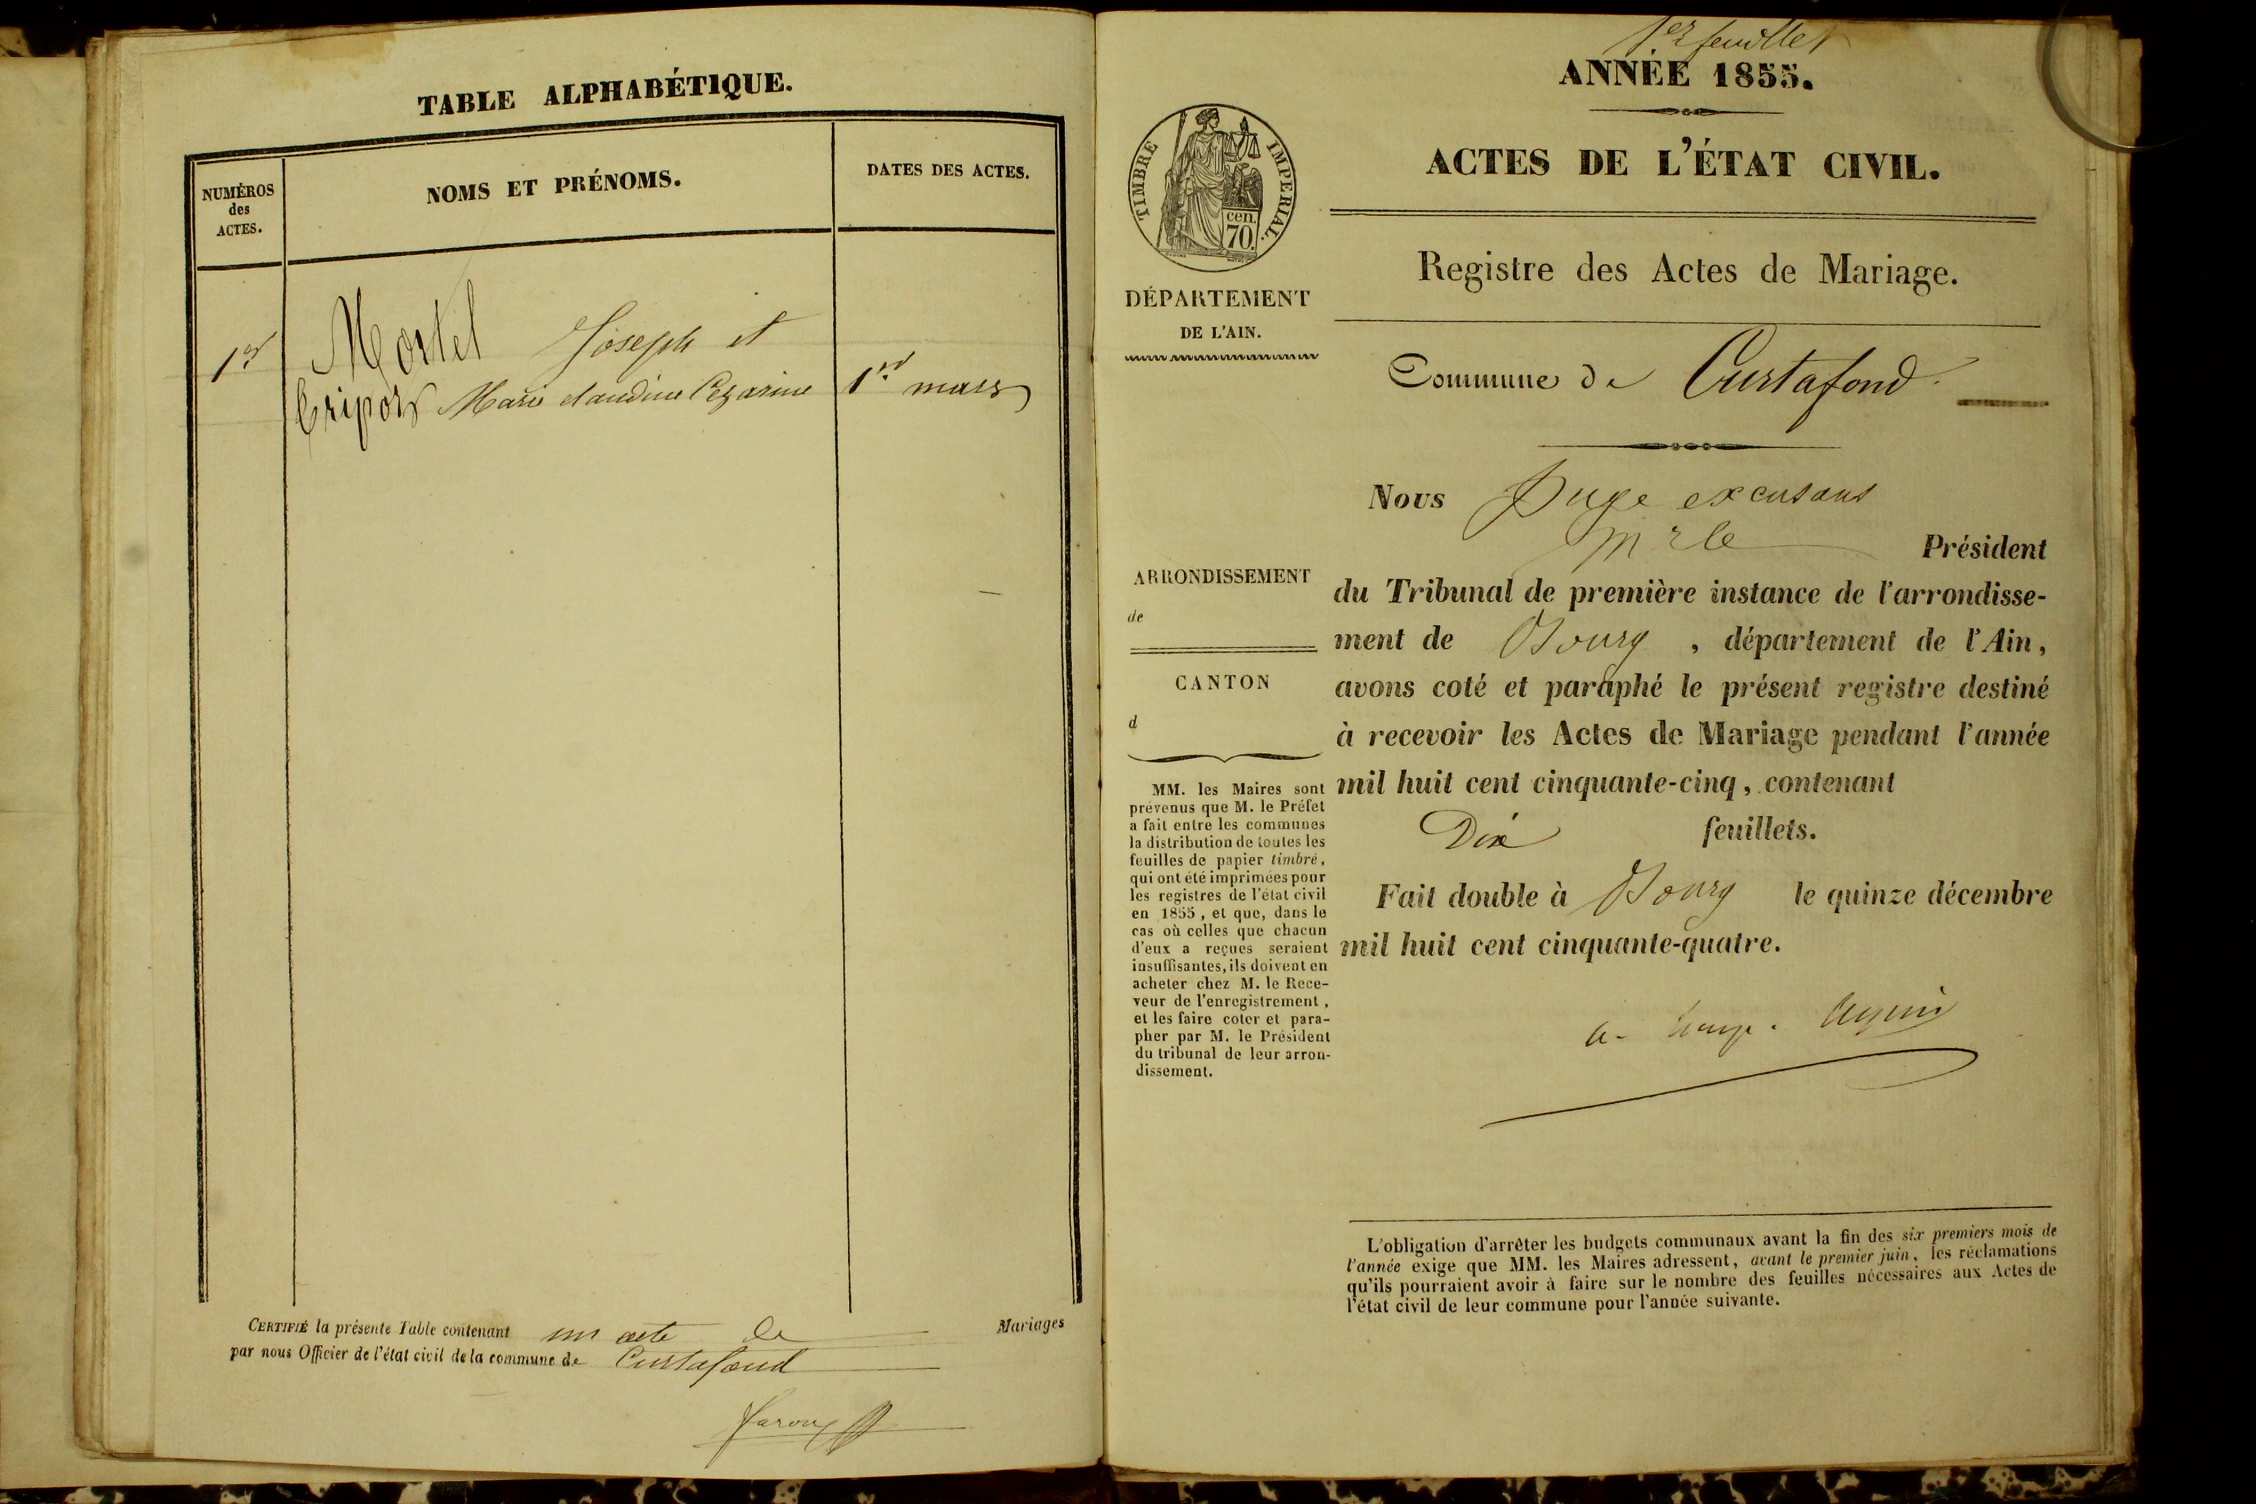 TABLE ALPHABÉTIQUE.
NUMÉROS
des
ACTES.
NOMS ET PRÉNOMS.
DATES DES ACTES.
1er
Mortel Joseph et
Marie claudine Cezarine
1er mars
CERTIFIÉ la présente Table contenant un acte de Mariages
par nous Officier de l'état civil de la commune de Curtafond
1er feuillet
ANNÉE 1855.
ACTES DE L'ÉTAT CIVIL.
TIMBRE IMPERIAL.
cen.
70.
DÉPARTEMENT
DE L'AIN.
Registre des Actes de Mariage.
Commune de Curtafond.
Nous Juge excusant
Mr le Président
du Tribunal de première instance de l'arrondisse-
ment de Bourg, département de l'Ain,
avons coté et paraphé le présent registre destiné
à recevoir les Actes de Mariage pendant l'année
mil huit cent cinquante-cinq, contenant
Dix feuillets.
Fait double à Bourg le quinze décembre
mil huit cent cinquante-quatre.
ARRONDISSEMENT
de
CANTON
d
MM. les Maires sont
prévenus que M. le Préfet
a fait entre les communes
la distribution de toutes les
feuilles de papier timbré,
qui ont été imprimées pour
les registres de l'état civil
en 1855, et que, dans le
cas où celles que chacun
d'eux a reçues seraient
insuffisantes, ils doivent en
acheter chez M. le Rece-
veur de l'enregistrement,
et les faire coter et para-
pher par M. le Président
du tribunal de leur arron-
dissement.
L'obligation d'arrêter les budgets communaux avant la fin des six premiers mois de
l'année exige que MM. les Maires adressent, avant le premier juin, les réclamations
qu'ils pourraient avoir à faire sur le nombre des feuilles nécessaires aux Actes de
l'état civil de leur commune pour l'année suivante.